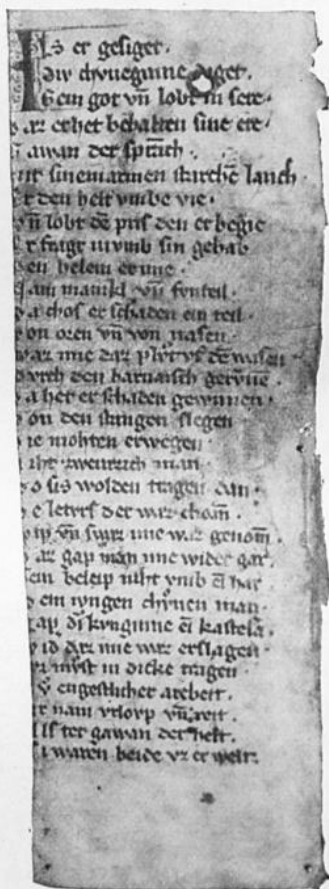 ls er gesiget.
div chvneginne
Gein got vn̄ lobt in sere.
ar er het behalten sine ere
awan der sprach.
sinen armen starche lanch
den helt vmbe vie.
vn̄ lobt dē pris den er begie
r fragt in vmb sin gehab
en helem er ime.
mantel vn̄
a chos er schaden ein teil
on oren vn̄ von nasen.
war ime daz plvt vf dē wasen
vrch den harnaisch gervnē.
a het er schaden gewunnen.
on den stangen slegen
ie mohten erwegen
iht zweinzich man
o sis wolden tragen dan.
e letvrf der war chom̄.
ip vn̄ swert ime war genom̄
az gap man ime wider gar.
em beleip niht vmb ē har
em ivngen chvnen man
gap di kvnginne ē kastela
id dar ime war erslagen
mvst in dicke tragen
engestlicher arebeit.
r nam vrlovp vn̄ reit.
gawan der helt.
i waren beide vz er welt.